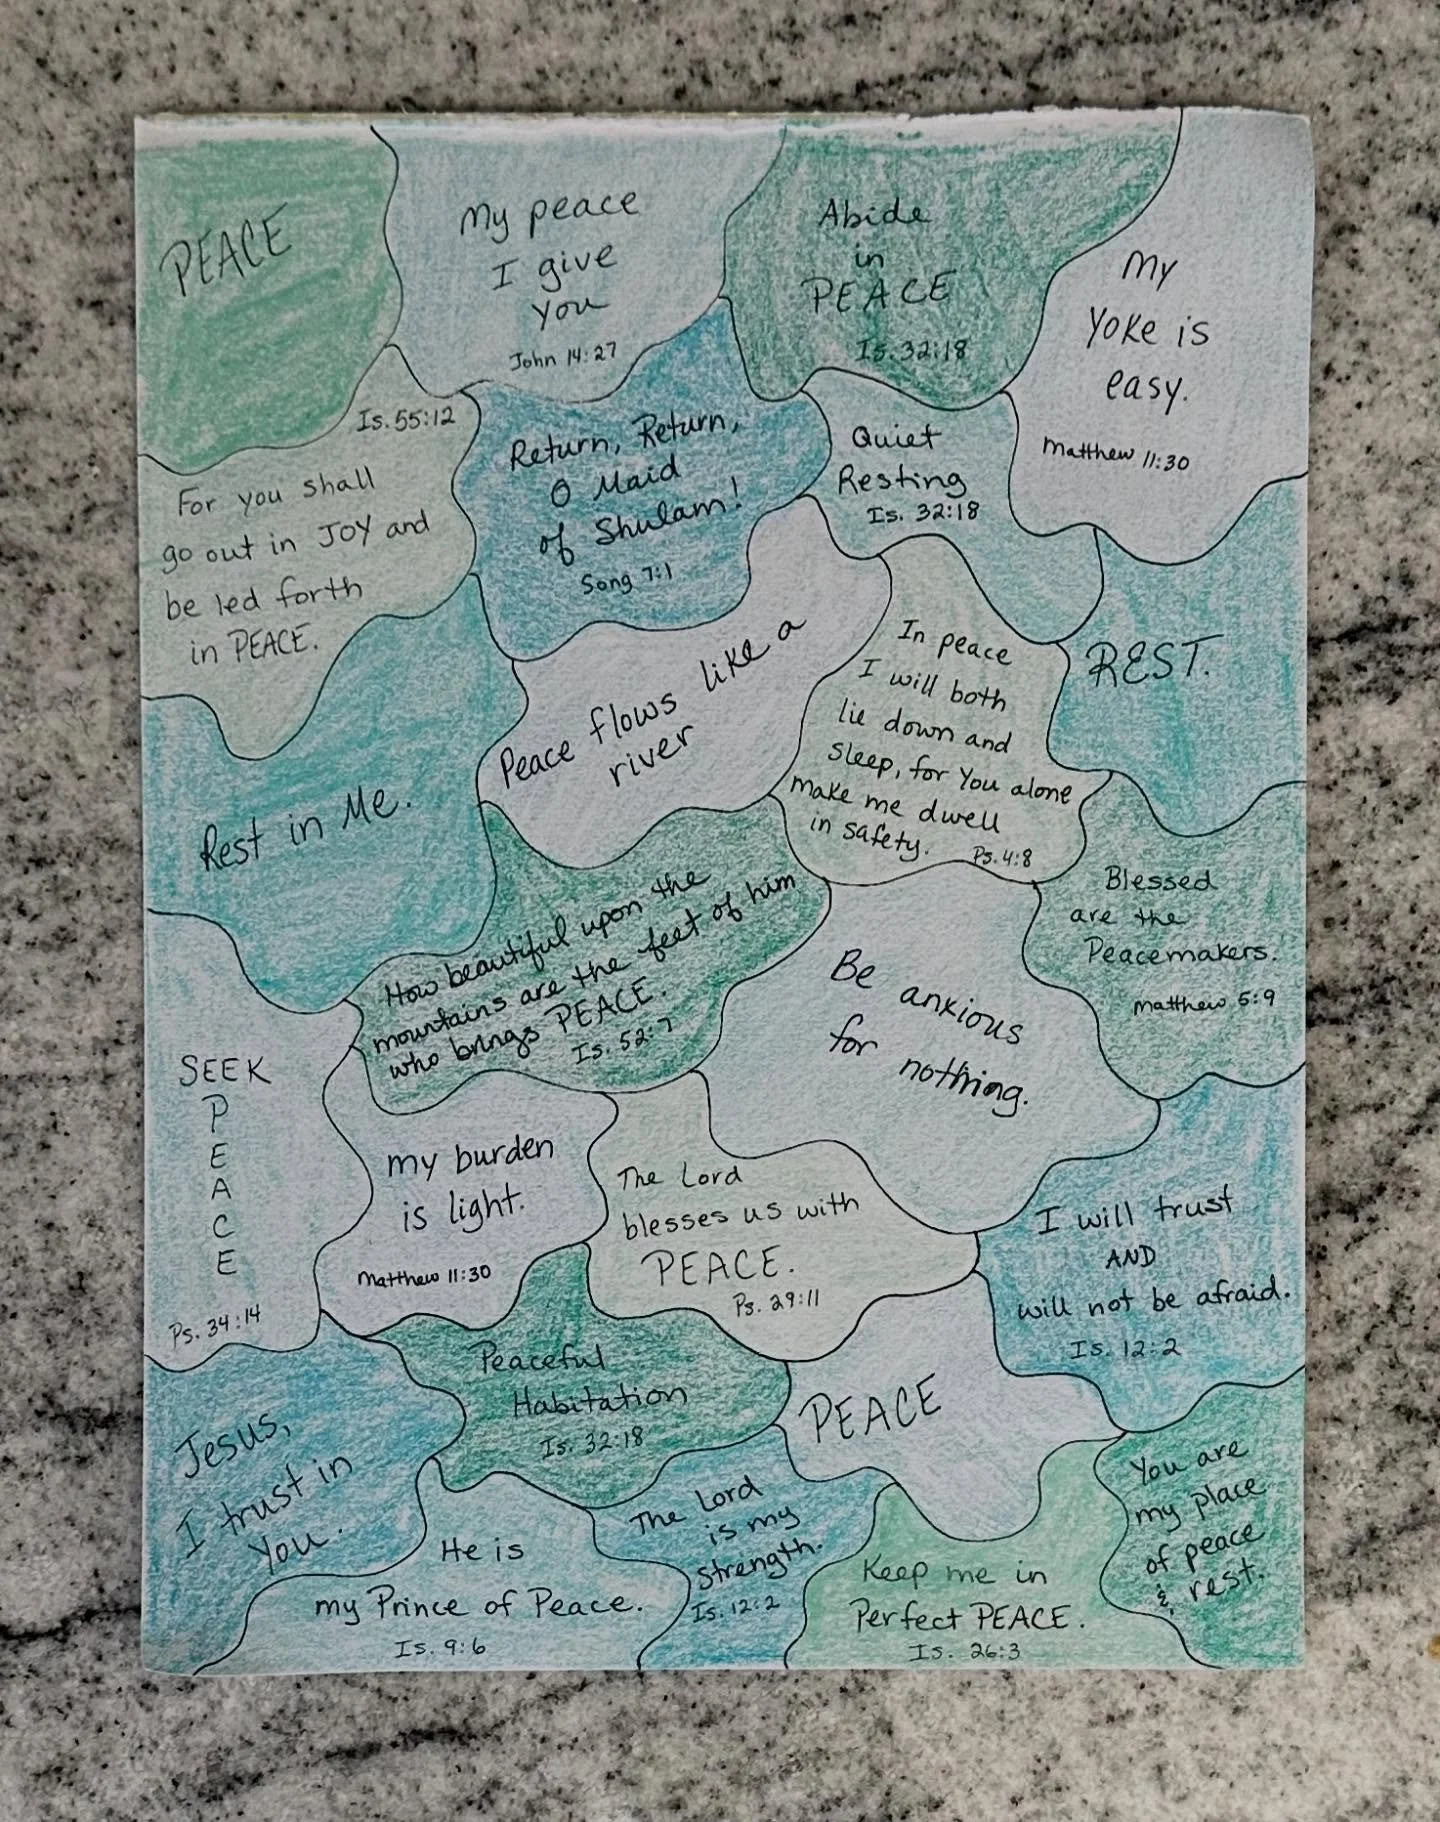 PEACE
My peace
I give
You
John 14:27
Abide
in
PEACE
Is. 32:18
My
Yoke is
easy.
Matthew 11:30
Is. 55:12
For you shall
go out in JOY and
be led forth
in PEACE.
Return, Return,
O Maid
of Shulam!
Song 7:1
Quiet
Resting
Is. 32:18
Peace flows like a
river
In peace
I will both
lie down and
sleep, for You alone
make me dwell
in safety.
Ps. 4:8
REST.
Rest in Me.
How beautiful upon the
mountains are the feet of him
who brings PEACE.
Is. 52:7
Be anxious
for nothing.
Blessed
are the
Peacemakers.
Matthew 5:9
SEEK
P
E
A
C
E
Ps. 34:14
my burden
is light.
Matthew 11:30
The Lord
blesses us with
PEACE.
Ps. 29:11
I will trust
AND
will not be afraid.
Is. 12:2
Peaceful
Habitation
Is. 32:18
PEACE
Jesus,
I trust in
You.
He is
my Prince of Peace.
Is. 9:6
The Lord
is my
strength.
Is. 12:2
Keep me in
Perfect PEACE.
Is. 26:3
You are
my place
of peace
& rest.